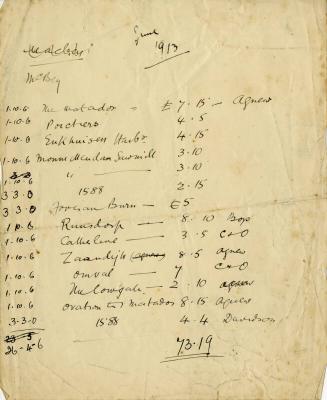 June
1913
McBey
1-10-6 The Matador - £7.15 - Agnew
1-10-6 Poachers 4.5
1-10-6 Enkhuizen Harbr 4.15
1-10-6 3.10
3-3-0 " 3.10
1-10-6 1588 2.15
3 3.0 Foveran Burn - £5
3 3 0 — 8.10
1 10.6 Catheline — 3.5 C+O
1-10.6 Zaandijk (agnew) 8.5 agnew
1-10.6 omval — 7 C+O
1-10.6 The Cowgate - 2.10 agnew
1.10.6 ovation to Matador 8.15 Agnew
3-3-0 1588 — 4-4 Davidson
23-5-6
26-4-6 73.19